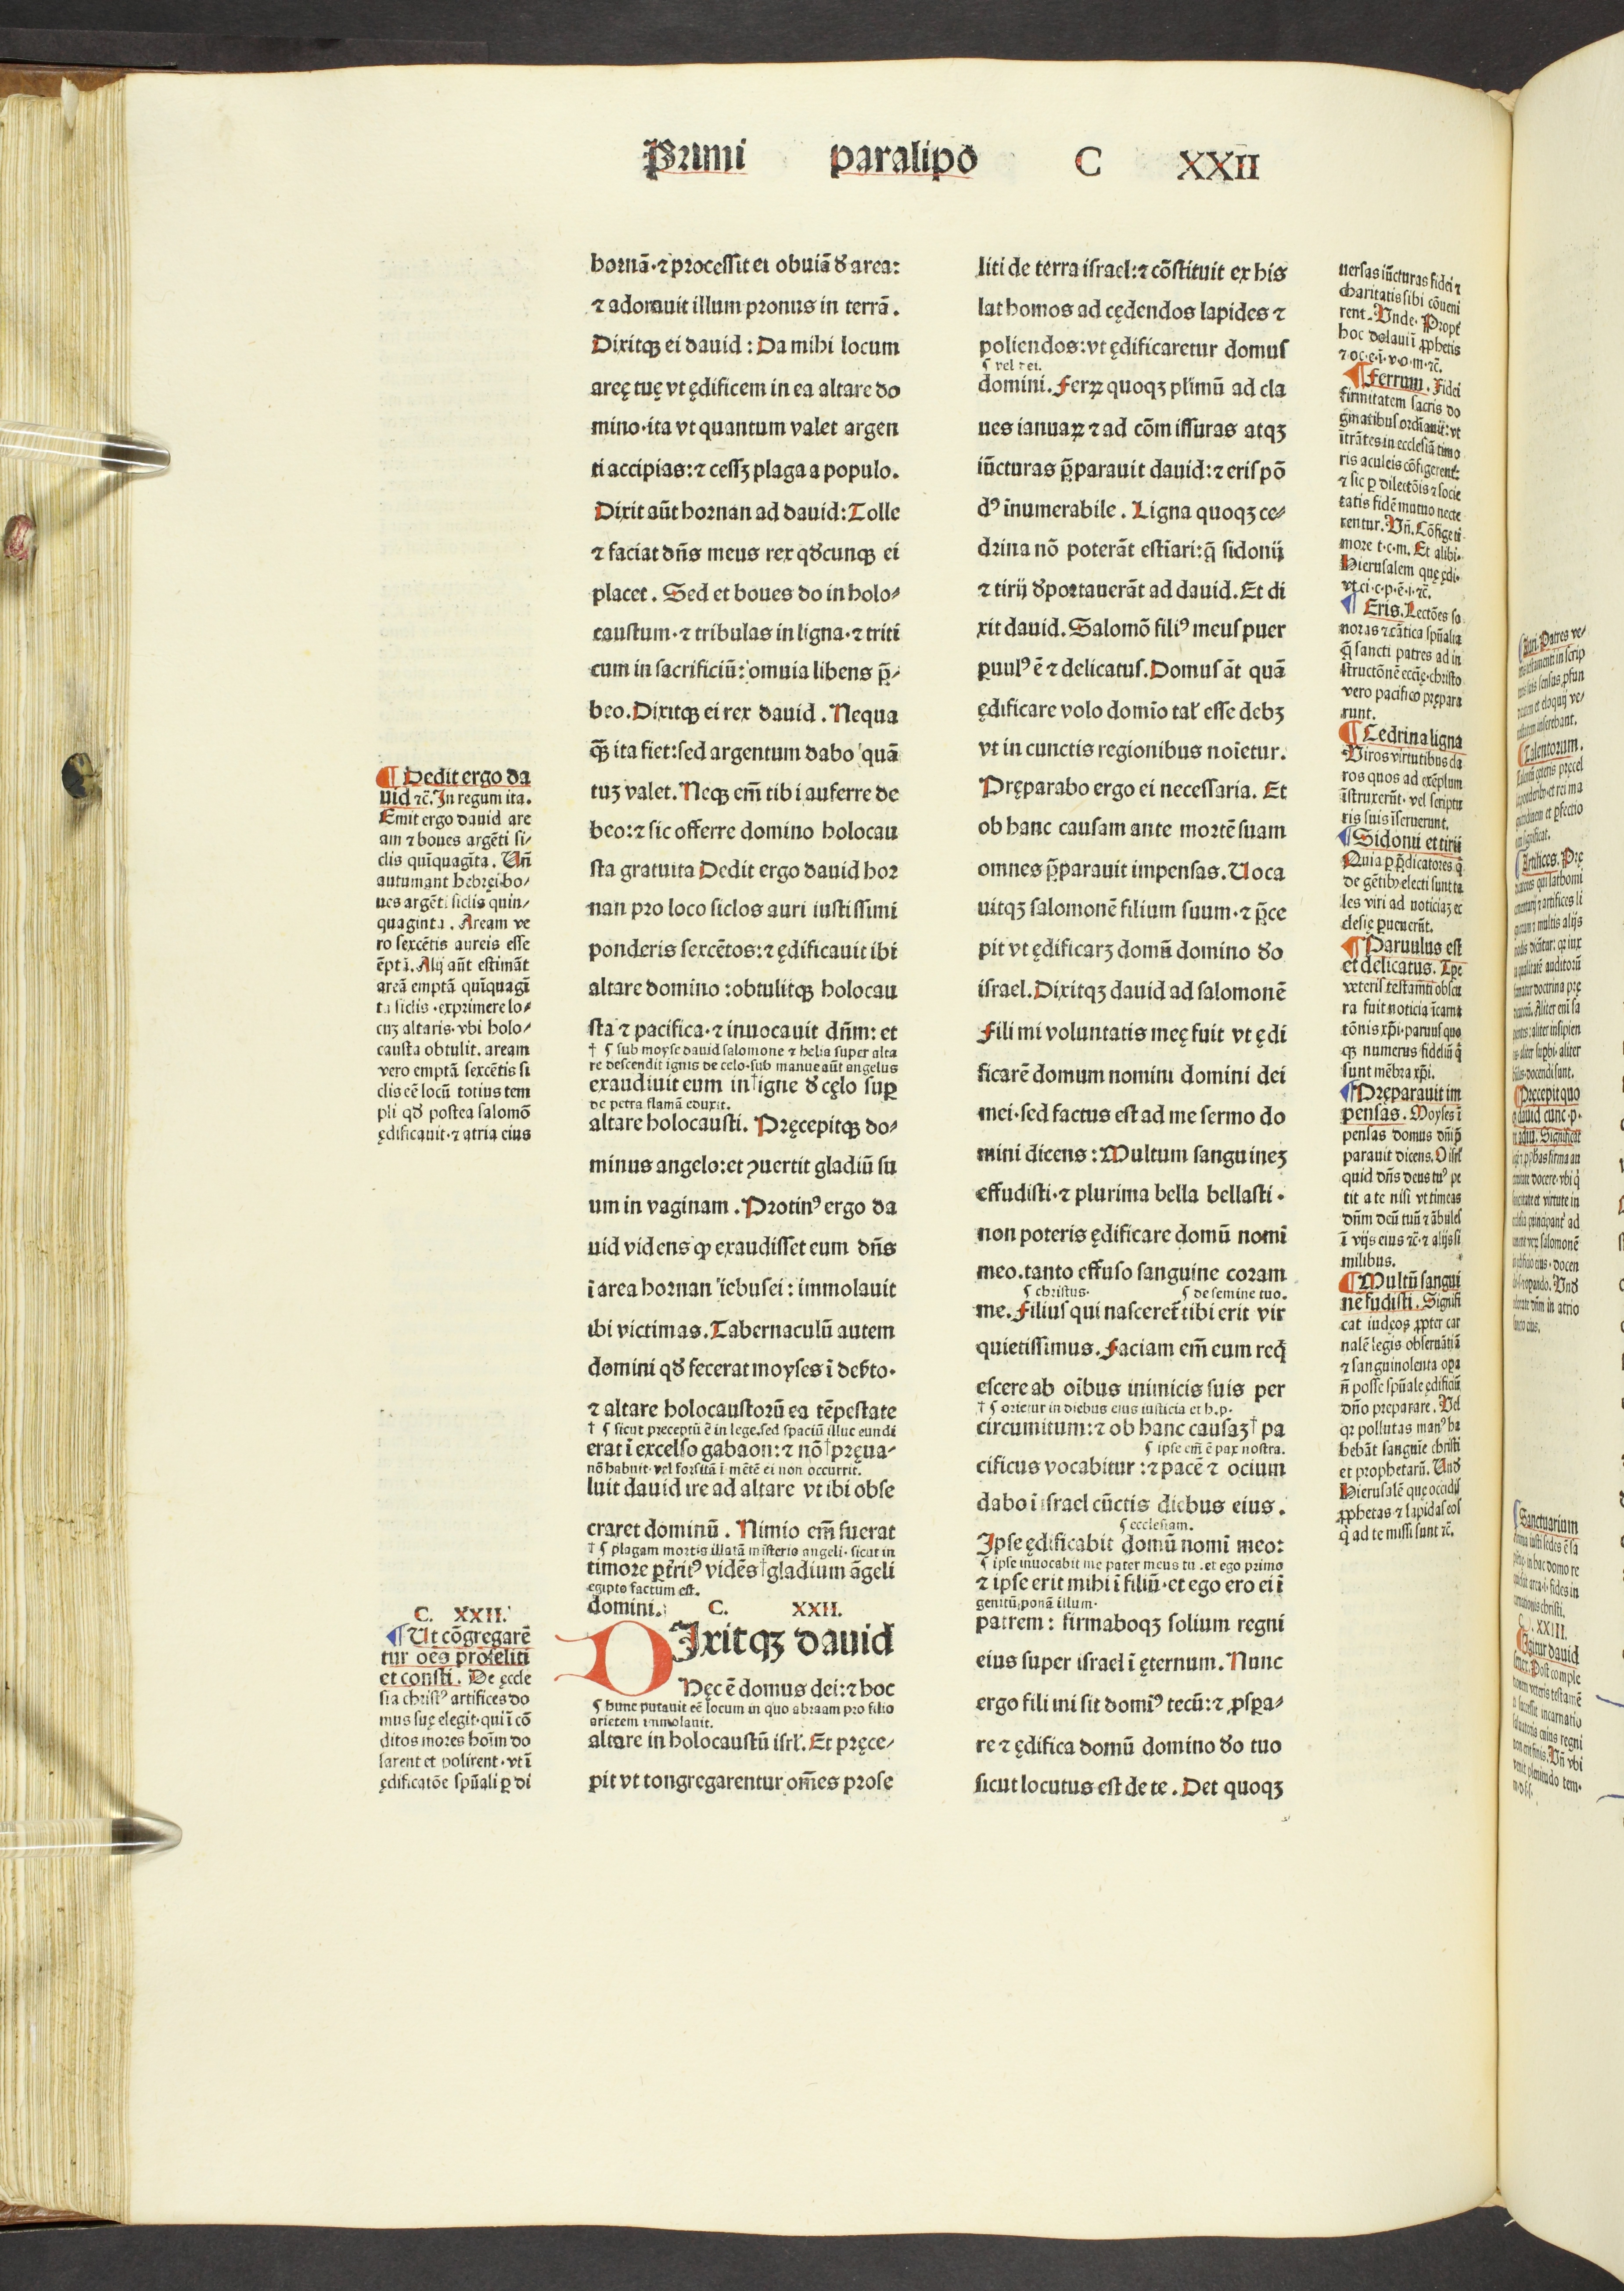 Primi paralipō C XXII
Dedit ergo da
uid ⁊c̄. In regum ita.
Emit ergo dauid are
am ⁊ boues argēti si⸗
clis quīquagīta. Uñ
autumant hebręi bo⸗
ues argēti siclis quin⸗
quaginta. Aream ve
ro sexcētis aureis esse
ēptā. Alij aūt estimāt
areā emptā quīquagī
ta siclis · exprimere lo⸗
cuꝫ altaris · vbi holo⸗
causta obtulit. aream
vero emptā sexcētis si
clis eē locū totius tem
pli qđ postea salomō
ędificauit · ⁊ atria eius
C. XXII.
Ut cōgregarē
tur oēs proseliti
et consti. De eccle
sia christꝰ artifices do
mus suę elegit · qui ī cō
ditos mores hoīm do
larent et polirent · vt ī
ędificatōe spūali ꝑ di
hornā · ⁊ processit ei obuiā đ area:
⁊ adorauit illum pronus in terrā.
Dixitqꝫ ei dauid : Da mihi locum
areę tuę vt ędificem in ea altare do
mino · ita vt quantum valet argen
ti accipias: ⁊ cessꝫ plaga a populo.
Dixit aūt hornan ad dauid: Tolle
⁊ faciat dñs meus rex qđcunqꝫ ei
placet. Sed et boues do in holo⸗
caustum · ⁊ tribulas in ligna · ⁊ triti
cum in sacrificiū: omnia libens p̄⸗
beo. Dixitqꝫ ei rex dauid. Nequa
q̄ꝫ ita fiet: sed argentum dabo quā
tuꝫ valet. Neqꝫ em̄ tibi auferre de
beo: ⁊ sic offerre domino holocau
sta gratuita Dedit ergo dauid hor
nan pro loco siclos auri iustissimi
ponderis sexcētos: ⁊ ędificauit ibi
altare domino : obtulitqꝫ holocau
sta ⁊ pacifica · ⁊ inuocauit dñm: et
† ¶ sub moyse dauid salomone ⁊ helia super alta
re descendit ignis de celo · sub manue aūt angelus
exaudiuit eum in † igne đ cęlo suꝑ
de petra flamā eduxit.
altare holocausti. Pręcepitqꝫ do⸗
minus angelo: et ꝯuertit gladiū su
um in vaginam. Protinꝰ ergo da
uid videns ꝙ exaudisset eum dñs
ī area hornan iebusei : immolauit
ibi victimas. Tabernaculū autem
domini qđ fecerat moyses ī deẜto ·
⁊ altare holocaustorū ea tēpestate
† ¶ sicut preceptū ē in lege. sed spaciū illuc eundi
erat ī excelso gabaon: ⁊ nō † pręua⸗
nō habuit · vel forsitā ī mētē ei non occurrit.
luit dauid ire ad altare vt ibi obse
craret dominū. Nimio em̄ fuerat
† ¶ plagam mortis illatā misterio angeli · sicut in
timore pt̄ritꝰ vidēs † gladium āgeli
egipto factum est.
domini. C. XXII.
DIxitqꝫ dauid
Hęc ē domus dei: ⁊ hoc
¶ hunc putauit eē locum in quo abraam pro filio
arietem immolauit.
altare in holocaustū isrl'. Et pręce⸗
pit vt congregarentur om̄es prose
liti de terra israel: ⁊ cōstituit ex his
lathomos ad cędendos lapides ⁊
poliendos: vt ędificaretur domus
¶ vel rei.
domini. Ferꝝ quoqꝫ pl'imū ad cla
ues ianuaꝝ ⁊ ad cōmissuras atqꝫ
iūcturas p̄parauit dauid: ⁊ eris pō
dꝰ īnumerabile. Ligna quoqꝫ ce⸗
drina nō poterāt estīari: q̄ sidonij
⁊ tirij đportauerāt ad dauid. Et di
xit dauid. Salomō filiꝰ meus puer
ꝑuulꝰ ē ⁊ delicatus. Domus āt quā
ędificare volo domīo tal' esse debꝫ
vt in cunctis regionibus noīetur.
Pręparabo ergo ei necessaria. Et
ob hanc causam ante mortē suam
omnes p̄parauit impensas. Uoca
uitqꝫ salomonē filium suum · ⁊ p̄ce
pit vt ędificarꝫ domū domino đo
israel. Dixitqꝫ dauid ad salomonē
Fili mi voluntatis meę fuit vt ędi
ficarē domum nomini domini dei
mei · sed factus est ad me sermo do
mini dicens : Multum sanguineꝫ
effudisti · ⁊ plurima bella bellasti ·
non poteris ędificare domū nomi
meo. tanto effuso sanguine coram
¶ christus. ¶ de semine tuo.
me. Filius qui nasceret̄ tibi erit vir
quietissimus. Faciam em̄ eum req̄
escere ab oībus inimicis suis per
† ¶ orietur in diebus eius iusticia et h.p.
circumitum: ⁊ ob hanc causaꝫ † pa
¶ ipse em̄ ē pax nostra.
cificus vocabitur : ⁊ pacē ⁊ ocium
dabo ī israel cūctis diebus eius.
¶ ecclesiam.
Ipse ędificabit domū nomī meo:
¶ ipse inuocabit me pater meus tu. et ego primo
⁊ ipse erit mihi ī filiū · et ego ero ei ī
genitū ponā illum ·
patrem : firmaboqꝫ solium regni
eius super israel ī ęternum. Nunc
ergo fili mi sit domīꝰ tecū: ⁊ ꝓsꝑa⸗
re ⁊ ędifica domū domino đo tuo
sicut locutus est de te. Det quoqꝫ
uersas iūcturas fidei ⁊
charitatis sibi cōueni
rent. Unde. Propt̄
hoc dolaui ī ꝓphetis
⁊ oc.e.ī.v.o.m.⁊c̄.
Ferrum. Fidei
firmitatem sacris do
gmatibus ordīauit: vt
ītrātes in ecclesiā timo
ris aculeis cōfigerent̄:
⁊ sic ꝑ dilectōis ⁊ socie
tatis fidē mutuo necte
rentur. Uñ. Cōfige ti
more t.c.m. Et alibi.
Hierusalem quę ędi.
vt ci.c.p.ē.i.⁊c̄.
Eris. Lectōes so
noras ⁊ cātica spūalia
q̄ sancti patres ad in
structōnē eccl'ię · christo
vero pacifico prępara
runt.
Cedrina ligna
Uiros virtutibus cla
ros quos ad exēplum
īstruxerūt · vel scriptu
ris suis īseruerunt.
Sidonii et tirii
Quia ꝑ p̄dicatores q̄
de gētibꝰ electi sunt ta
les viri ad noticiaꝫ ec
clesię ꝑuenerūt.
Paruulus est
et delicatus. Tpe
veteris testamēti obscu
ra fuit noticia īcarna
tōnis xp̄i · paruus quo
qꝫ numerus fideliū q̄
sunt mēbra xp̄i.
Pręparauit im
pensas. Moyses ī
pensas domus dn̄i p̄
parauit dicens. O isrl'
quid dñs deus tuꝰ pe
tit a te nisi vt timeas
dñm deū tuū ⁊ ābules
ī vijs eius ⁊c̄ · ⁊ alijs si
milibus.
Multū sangui
nē fudisti. Signifi
cat iudęos ꝓpter car
nalē legis obseruātiā
⁊ sanguinolenta oꝑa
ñ posse spūale ędificiū
dño preparare. Uel
qꝛ pollutas manꝰ ha
bebāt sanguīe christi
et prophetarū. Unđ
Hierusalē que occidis
ꝓphetas ⁊ lapidas eos
q̄ ad te missi sunt ⁊c̄.
Auri. Patres ve⸗
Talentorum.
Artifices. Prę
Pręcepit quo
Sanctuarium
C. XXIII.
Igitur dauid